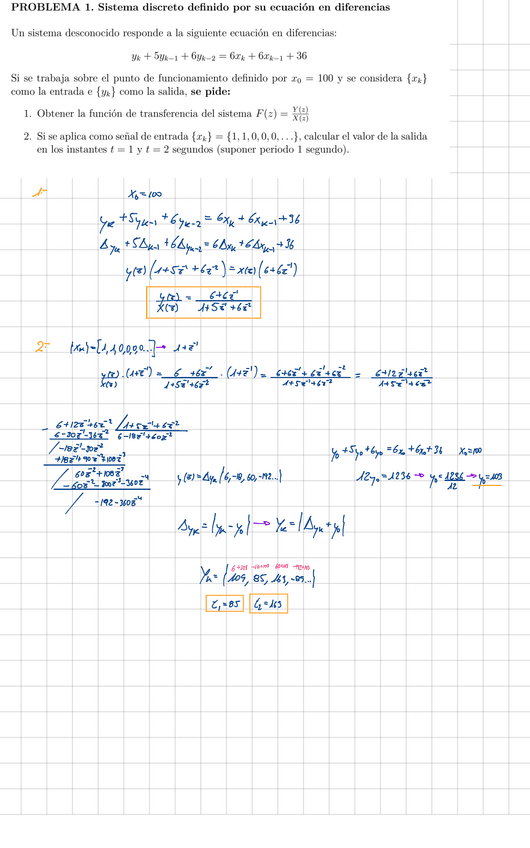 PROBLEMA 1. Sistema discreto definido por su ecuación en diferencias
Un sistema desconocido responde a la siguiente ecuación en diferencias:
yₖ + 5yₖ₋₁ + 6yₖ₋₂ = 6xₖ + 6xₖ₋₁ + 36
Si se trabaja sobre el punto de funcionamiento definido por x₀ = 100 y se considera {xₖ}
como la entrada e {yₖ} como la salida, se pide:
1. Obtener la función de transferencia del sistema F(z) = Y(z)/X(z)
2. Si se aplica como señal de entrada {xₖ} = {1, 1, 0, 0, 0, ...}, calcular el valor de la salida
en los instantes t = 1 y t = 2 segundos (suponer periodo 1 segundo).
1-
X₀=100
yₖ +5yₖ₋₁ +6yₖ₋₂ = 6xₖ +6xₖ₋₁ +36
Δyₖ +5Δₖ₋₁ +6Δyₖ₋₂ = 6Δxₖ +6Δxₖ₋₁ +36
y(z)(1+5z⁻¹+6z⁻²) = x(z)(6+6z⁻¹)
y(z)/x(z) = 6+6z⁻¹ / 1+5z⁻¹+6z⁻²
2-
{xₖ}=[1,1,0,0,0...] → 1+z⁻¹
y(z)/x(z) · (1+z⁻¹) = 6+6z⁻¹ / 1+5z⁻¹+6z⁻² · (1+z⁻¹) = 6+6z⁻¹+6z⁻¹+6z⁻² / 1+5z⁻¹+6z⁻² = 6+12z⁻¹+6z⁻² / 1+5z⁻¹+6z⁻²
- 6+12z⁻¹+6z⁻² /1+5z⁻¹+6z⁻²
6-30z⁻¹-36z⁻² 6-18z⁻¹+60z⁻²
/-18z⁻¹-30z⁻²
+18z⁻¹+90z⁻²+108z⁻³
/ 60z⁻²+108z⁻³
-60z⁻²-300z⁻³-360z⁻⁴
/ -192-360z⁻⁴
y₀ +5y₀+6y₀ =6x₀ +6x₀+36 x₀=100
12y₀ =1236 → y₀ = 1236/12 → y₀=103
y(z)=Δyₖ {6,-18,60,-192...}
Δyₖ = {yₖ - y₀} → yₖ = {Δyₖ + y₀}
6+103 -18+103 60+103 -192+103
Yₖ = {109, 85, 163, -89...}
t₁=85 t₂=163